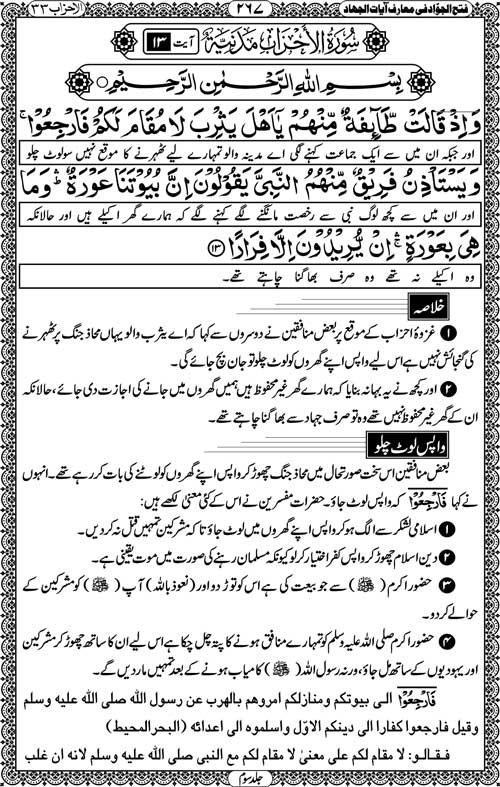 فتح الجوّاد فی معارف آیات الجهاد ۲۶۷ الاحزاب ۳۳
سُوْرَةُ الْاَحْزَابِ مَدَنِيَّةٌ آیت ۱۳
بِسْمِ اللهِ الرَّحْمٰنِ الرَّحِيْمِ
وَاِذْ قَالَتْ طَّآىِٕفَةٌ مِّنْهُمْ يٰٓاَهْلَ يَثْرِبَ لَا مُقَامَ لَكُمْ فَارْجِعُوْا ۚ
اور جبکہ ان میں سے ایک جماعت کہنے لگی اے مدینہ والو تمہارے لیے ٹھہرنے کا موقع نہیں سو لوٹ چلو
وَيَسْتَاْذِنُ فَرِيْقٌ مِّنْهُمُ النَّبِيَّ يَقُوْلُوْنَ اِنَّ بُيُوْتَنَا عَوْرَةٌ ۛ وَمَا
اور ان میں سے کچھ لوگ نبی سے رخصت مانگنے لگے کہنے لگے کہ ہمارے گھر اکیلے ہیں اور حالانکہ
هِيَ بِعَوْرَةٍ ۛ اِنْ يُّرِيْدُوْنَ اِلَّا فِرَارًا ۝۱۳
وہ اکیلے نہ تھے وہ صرف بھاگنا چاہتے تھے۔
خلاصہ
۱ غزوۂ احزاب کے موقع پر بعض منافقین نے دوسروں سے کہا کہ اے یثرب والو یہاں محاذ جنگ پر ٹھہرنے
کی گنجائش نہیں ہے اس لیے واپس اپنے گھروں کو لوٹ چلو تو جان بچ جائے گی۔
۲ اور کچھ نے یہ بہانہ بنایا کہ ہمارے گھر غیر محفوظ ہیں ہمیں گھروں میں جانے کی اجازت دی جائے، حالانکہ
ان کے گھر غیر محفوظ نہیں تھے وہ تو صرف جہاد سے بھاگنا چاہتے تھے۔
واپس لوٹ چلو
بعض منافقین اس سخت صورتحال میں محاذ جنگ چھوڑ کر واپس اپنے گھروں کو لوٹنے کی بات کر رہے تھے۔ انہوں
نے کہا فَارْجِعُوْا کہ واپس لوٹ جاؤ۔ حضرات مفسرین نے اس کے کئی معنیٰ لکھے ہیں:
۱ اسلامی لشکر سے الگ ہو کر واپس اپنے گھروں میں لوٹ جاؤ تاکہ مشرکین تمہیں قتل نہ کر دیں۔
۲ دین اسلام چھوڑ کر واپس کفر اختیار کر لو کیونکہ مسلمان رہنے کی صورت میں موت یقینی ہے۔
۳ حضور اکرم (ﷺ) سے جو بیعت کی ہے اس کو توڑ دو اور (نعوذ باللہ) آپ (ﷺ) کو مشرکین کے
حوالے کر دو۔
۴ حضور اکرم صلی اللہ علیہ وسلم کو تمہارے منافق ہونے کا پتہ چل چکا ہے اس لیے ان کا ساتھ چھوڑ کر مشرکین
اور یہودیوں کے ساتھ مل جاؤ، ورنہ رسول اللہ (ﷺ) کامیاب ہونے کے بعد تمہیں مار دیں گے۔
فَارْجِعُوْا الی بیوتکم ومنازلکم امروهم بالهرب عن رسول اللّٰہ صلی اللّٰہ علیه وسلم
وقیل فارجعوا کفارا الی دینکم الاوّل واسلموه الی اعدائه (البحر المحیط)
فقالو: لا مقام لکم علی معنیٰ لا مقام لکم مع النبی صلی اللّٰہ علیه وسلم لانه ان غلب
جلد سوم